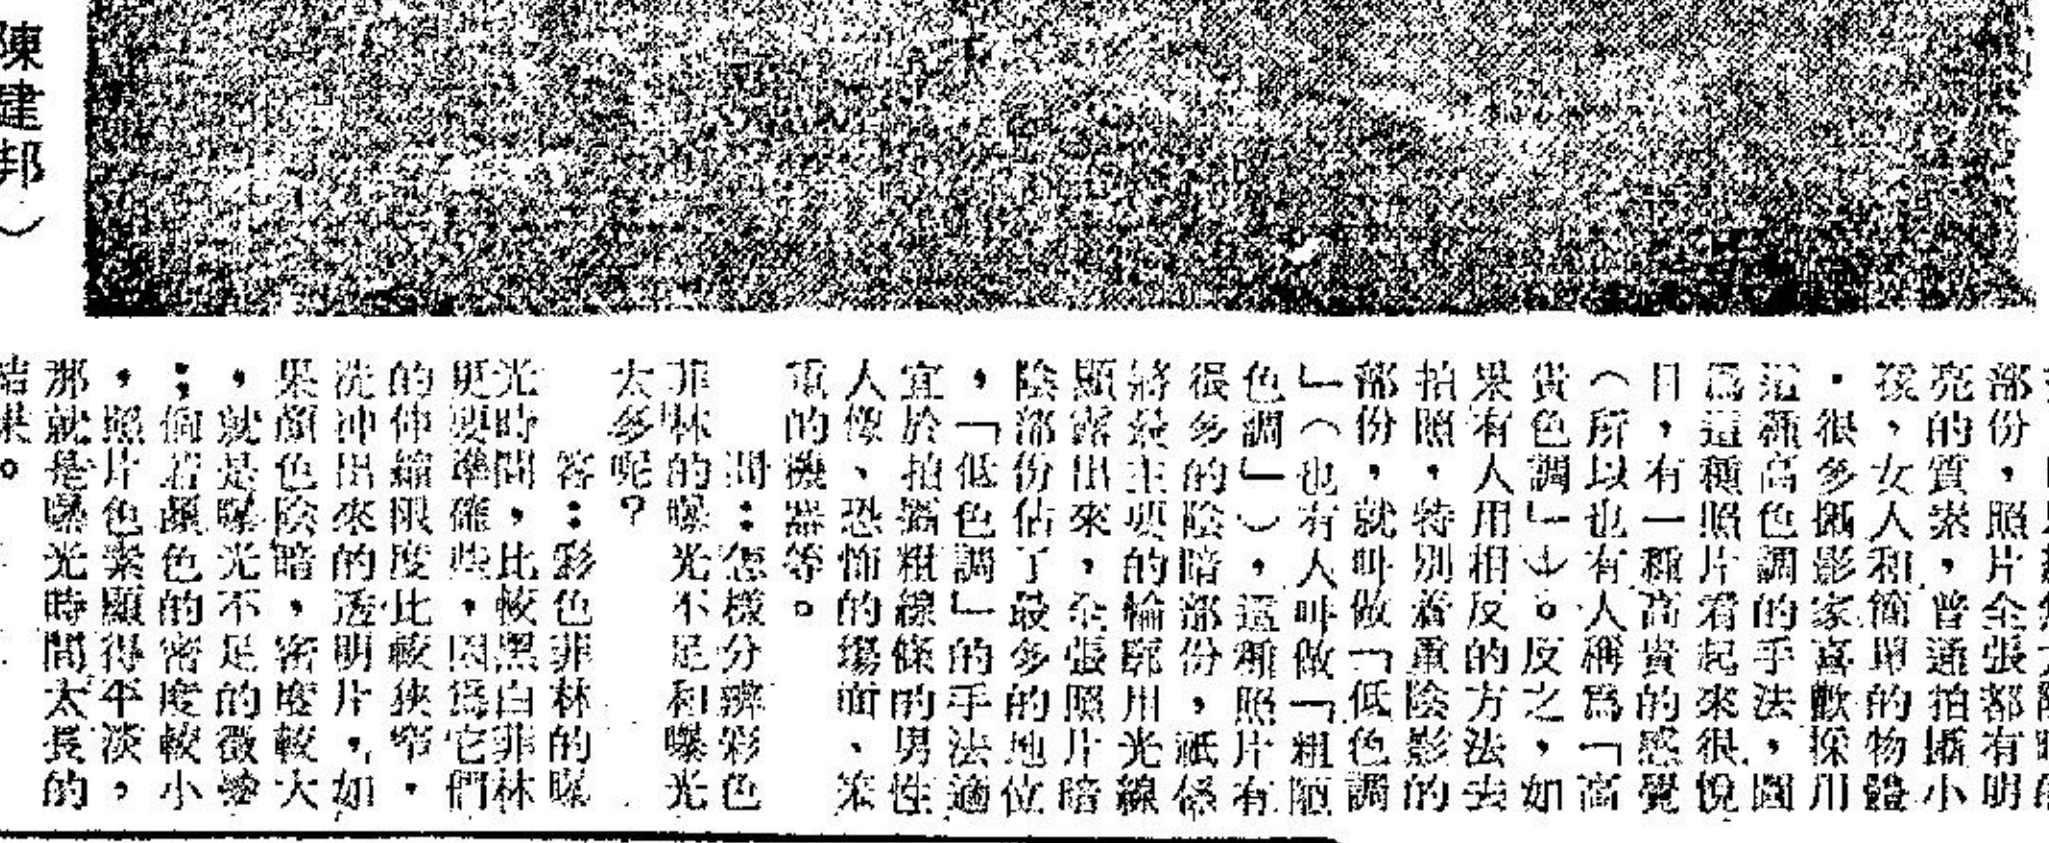 部份，照片全張都有明
亮的質素，普通拍攝小
孩，女人和簡單的物體
．很多攝影家喜歡採用
這種高色調的手法，圖
爲這種照片看起來很悅
目，有一種高貴的感覺
（所以也有人稱爲「高
貴色調」）。反之，如
果有人用相反的方法去
拍照，特別着重陰影的
部份，就叫做「低色調
」（也有人叫做「粗陋
色調」），這種照片有
很多的陰暗部份，祗係
將最主要的輪廓用光線
顯露出來，全張照片暗
陰部份佔了最多的地位
，「低色調」的手法適
宜於拍攝粗線條的男性
人像、恐怖的塲面、笨
重的機器等。
問：怎樣分辨彩色
菲林的曝光不足和曝光
太多呢？
答：彩色菲林的曝
光時間，比較黑白菲林
更要準確些，因爲它們
的伸縮限度比較狹窄．
洗冲出來的透明片，如
果顏色陰暗，密度較大
，就是曝光不足的徵象
；倘若顏色的密度較小
，照片色素顯得平淡，
那就是曝光時間太長的
結果。
陳建邦）